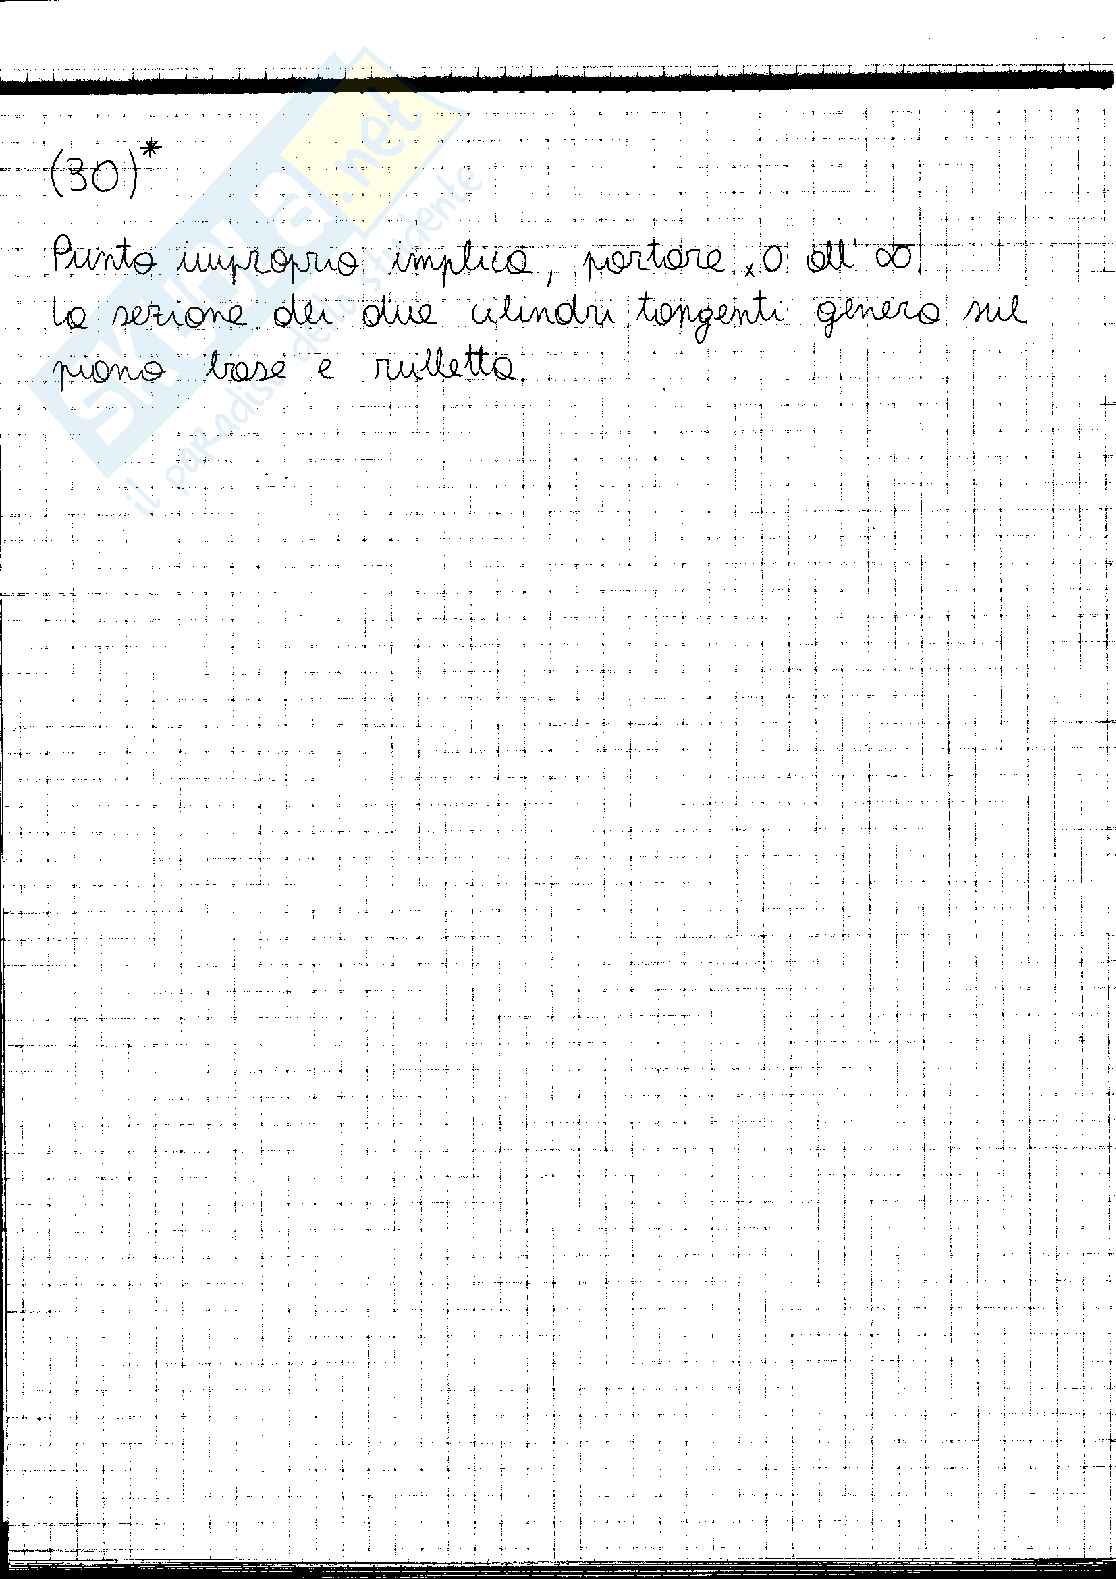 (30)*
Punto improprio implica, portare x0 all'∞
la sezione dei due cilindri tangenti genera sul
piano base e rulletta.
SKUOLA.net
il paradiso dello studente